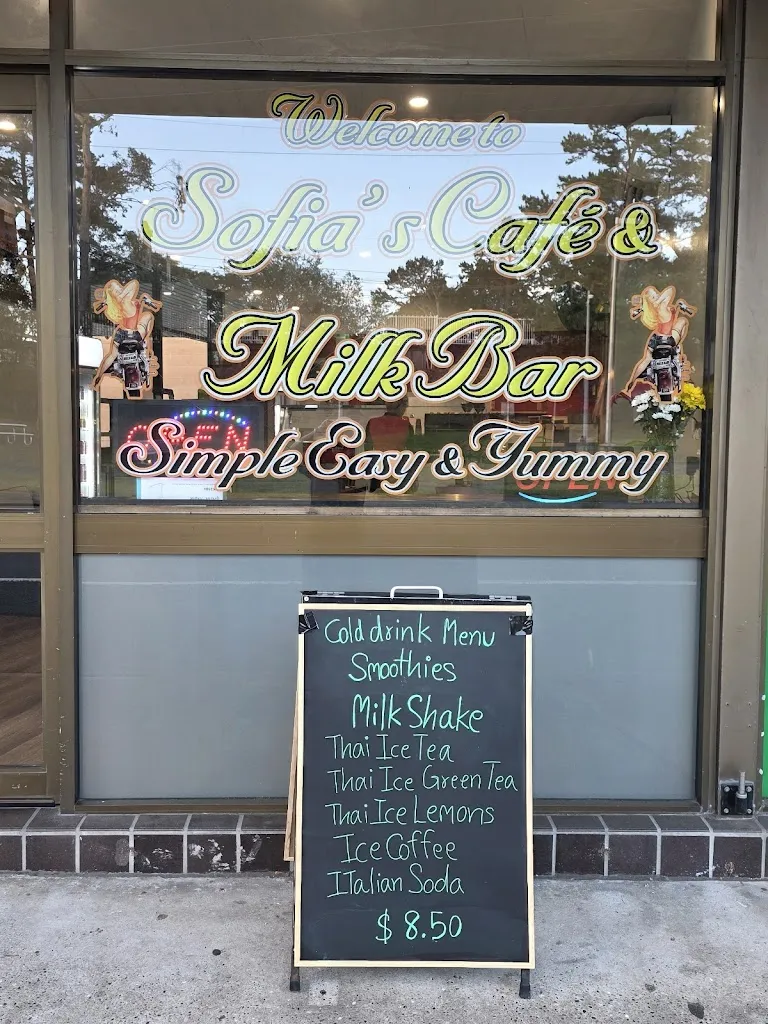 Welcome to
Sofia's Café &
Milk Bar
OPEN
Simple Easy & Yummy
OPEN
Cold drink Menu
Smoothies
Milk Shake
Thai Ice Tea
Thai Ice Green Tea
Thai Ice Lemons
Ice Coffee
Italian Soda
$ 8.50